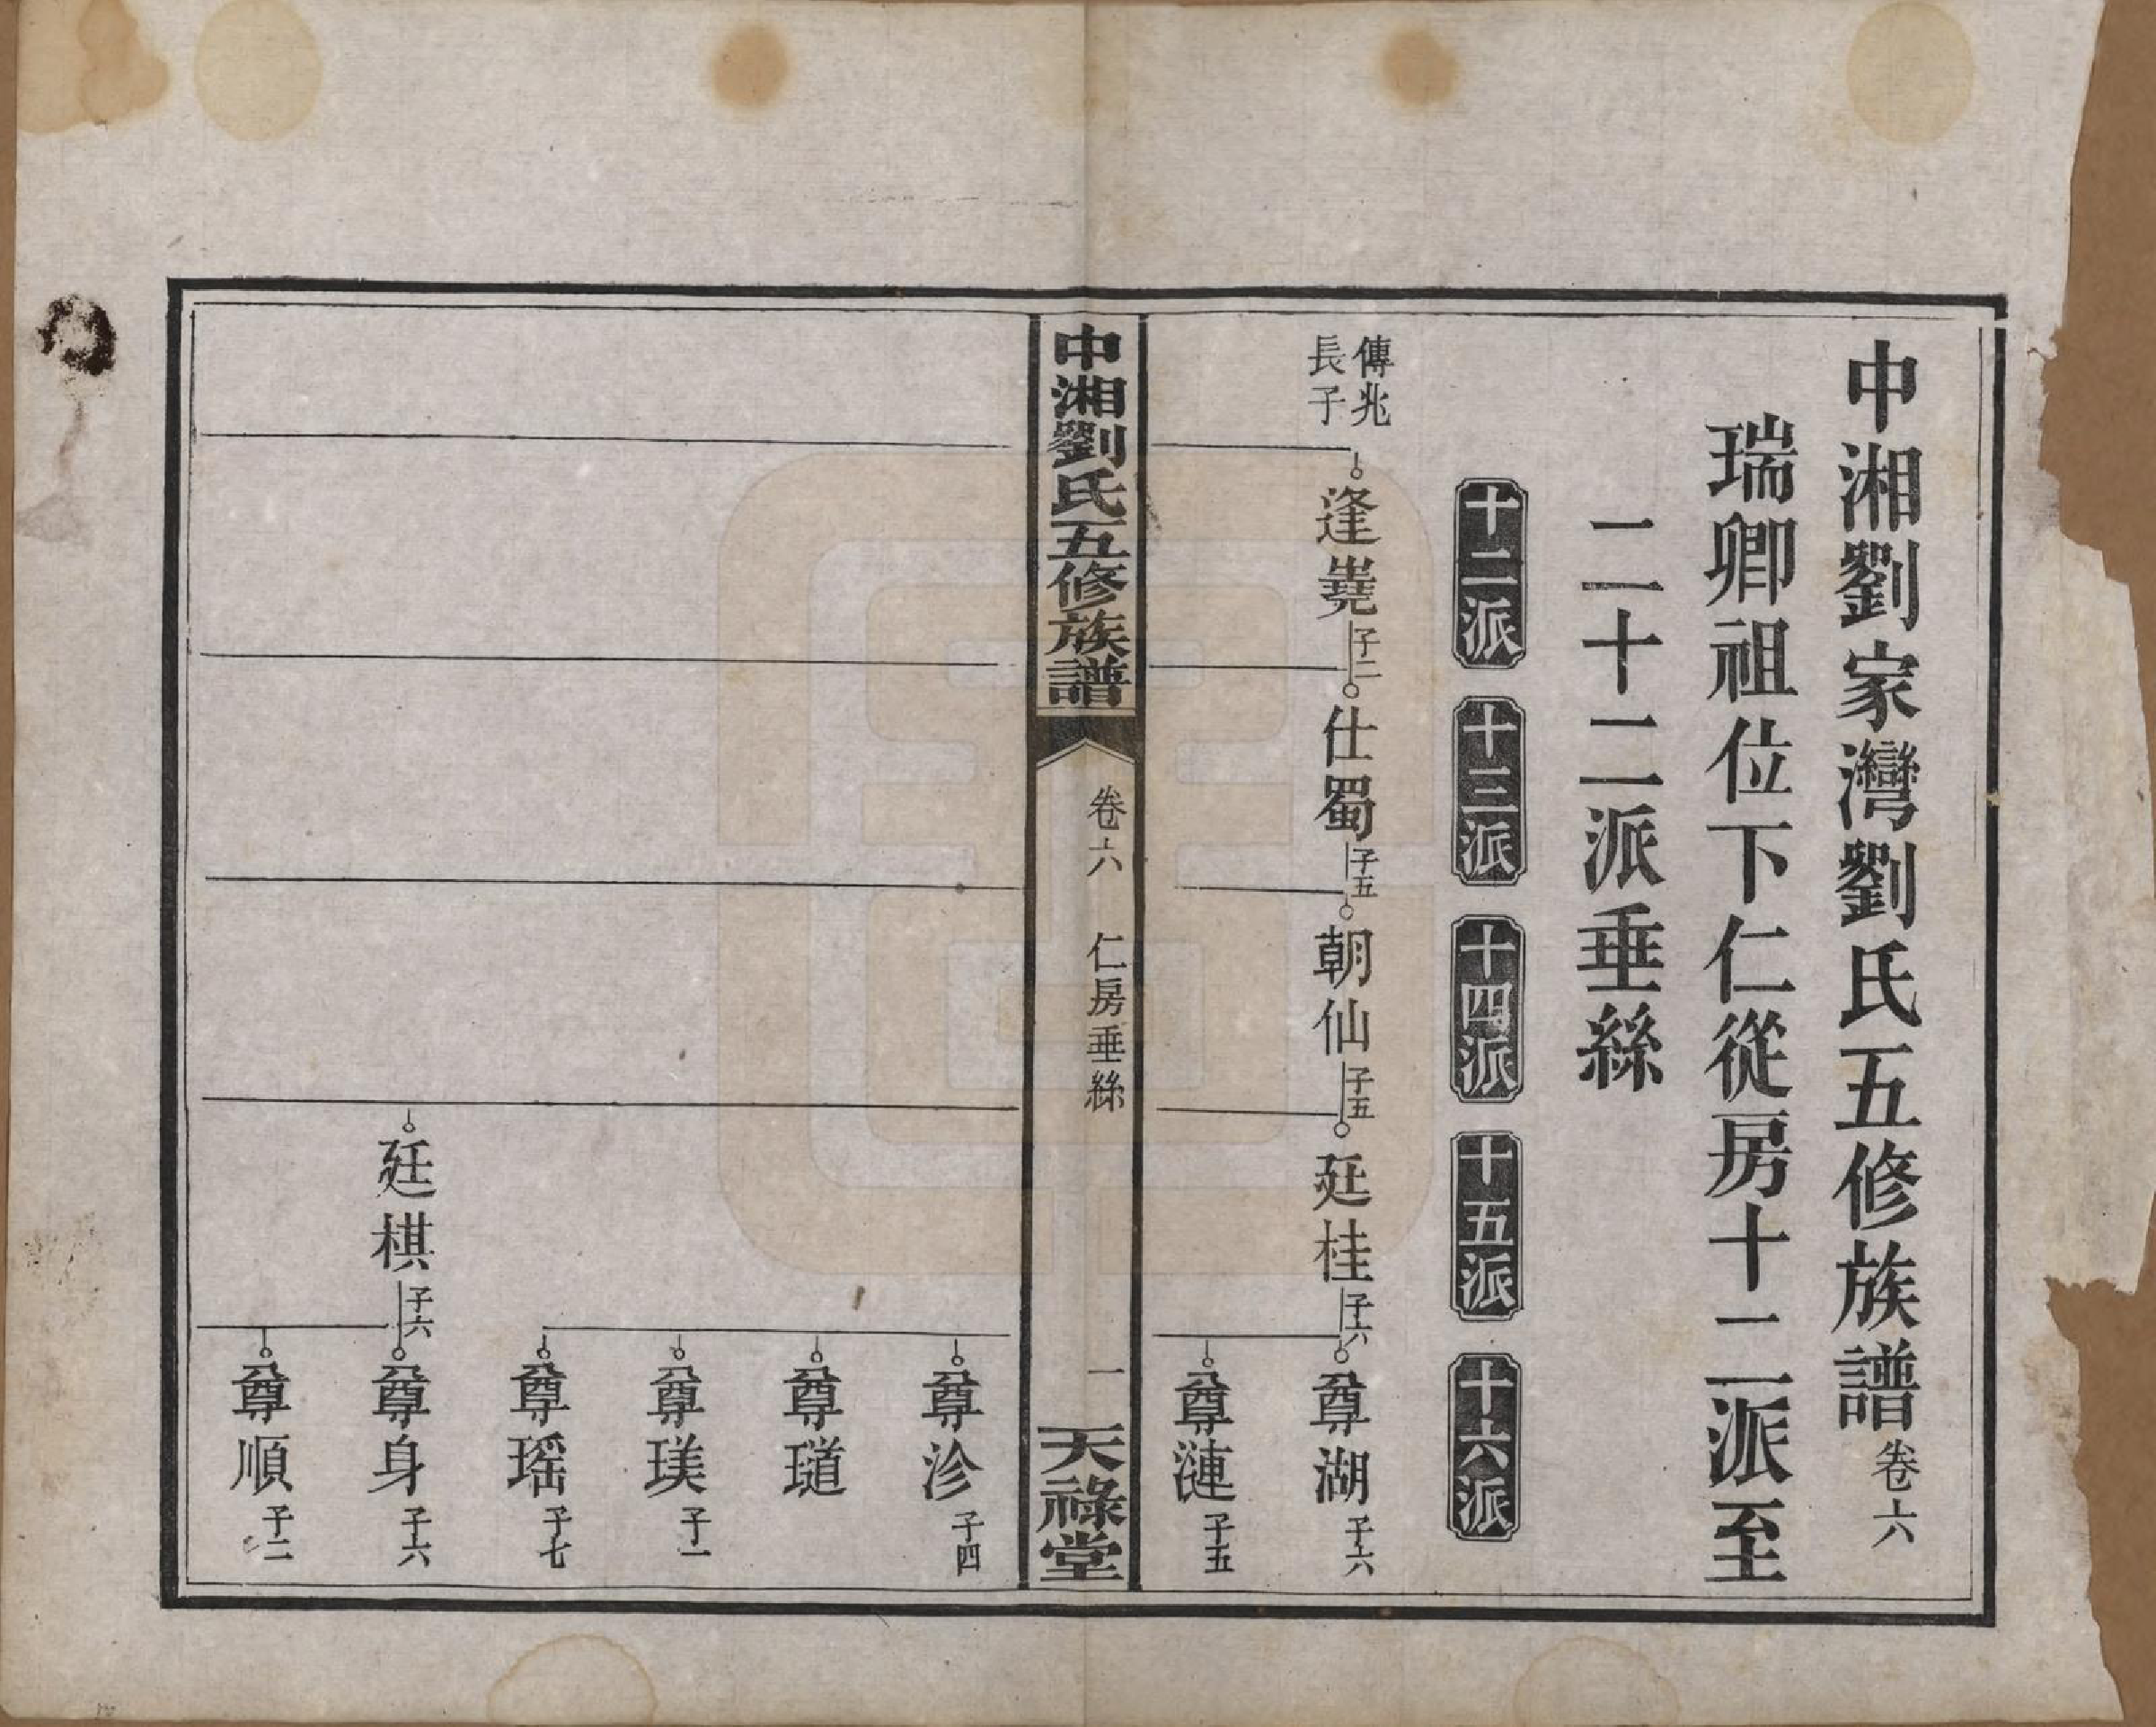 中湘劉家灣劉氏五修族譜卷六
瑞卿祖位下仁從房十二派至
二十二派垂絲
十二派 十三派 十四派 十五派 十六派
傳兆
長子
逢嶤子二 仕蜀子五 朝仙子五 廷桂子六 尊湖子六
尊漣子五
中湘劉氏五修族譜 卷六 仁房垂絲 一 天祿堂
尊沴子四
尊璴
尊瑛子一
尊瑶子七
廷棋子六 尊身子六
尊順子二